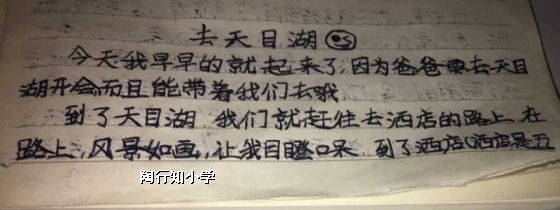 去天目湖
今天我早早的就起来了,因为爸爸要去天目
湖开会而且能带着我们去哦
到了天目湖 我们就赶往去酒店的路上 在
路上,风景如画,让我目瞪口呆 到了酒店(酒店是五
陶行知小学